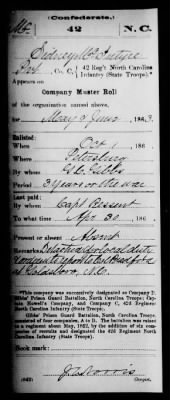 (Confederate.)
Mc 42 N.C.
Sidney McIntyre
Pvt, Co. C, 42 Reg't North Carolina
Infantry (State Troops).*
Appears on
Company Muster Roll
of the organization named above,
for May & June, 1863.
Enlisted:
When Oct 1, 186
Where Petersburg
By G. C. Gibbs
Period 3 years or the war
Last paid:
By Capt Bessent
To what time Apr 30, 186
Present or absent Absent
Remarks: Detached for local duty
at Goldsboro, N.C.
*This company was successively designated as Company D,
Gibbs' Prison Guard Battalion, North Carolina Troops; Captain
Howell's Company, and Company C, 42d Regiment North
Carolina Infantry (State Troops).
Gibbs' Prison Guard Battalion, North Carolina Troops,
consisted of four companies, A to D. The battalion was raised
to a regiment about May, 1862, by the addition of six companies
of recruits and designated the 42d Regiment North
Carolina Infantry (State Troops).
Book mark:
(642)
Copyist.